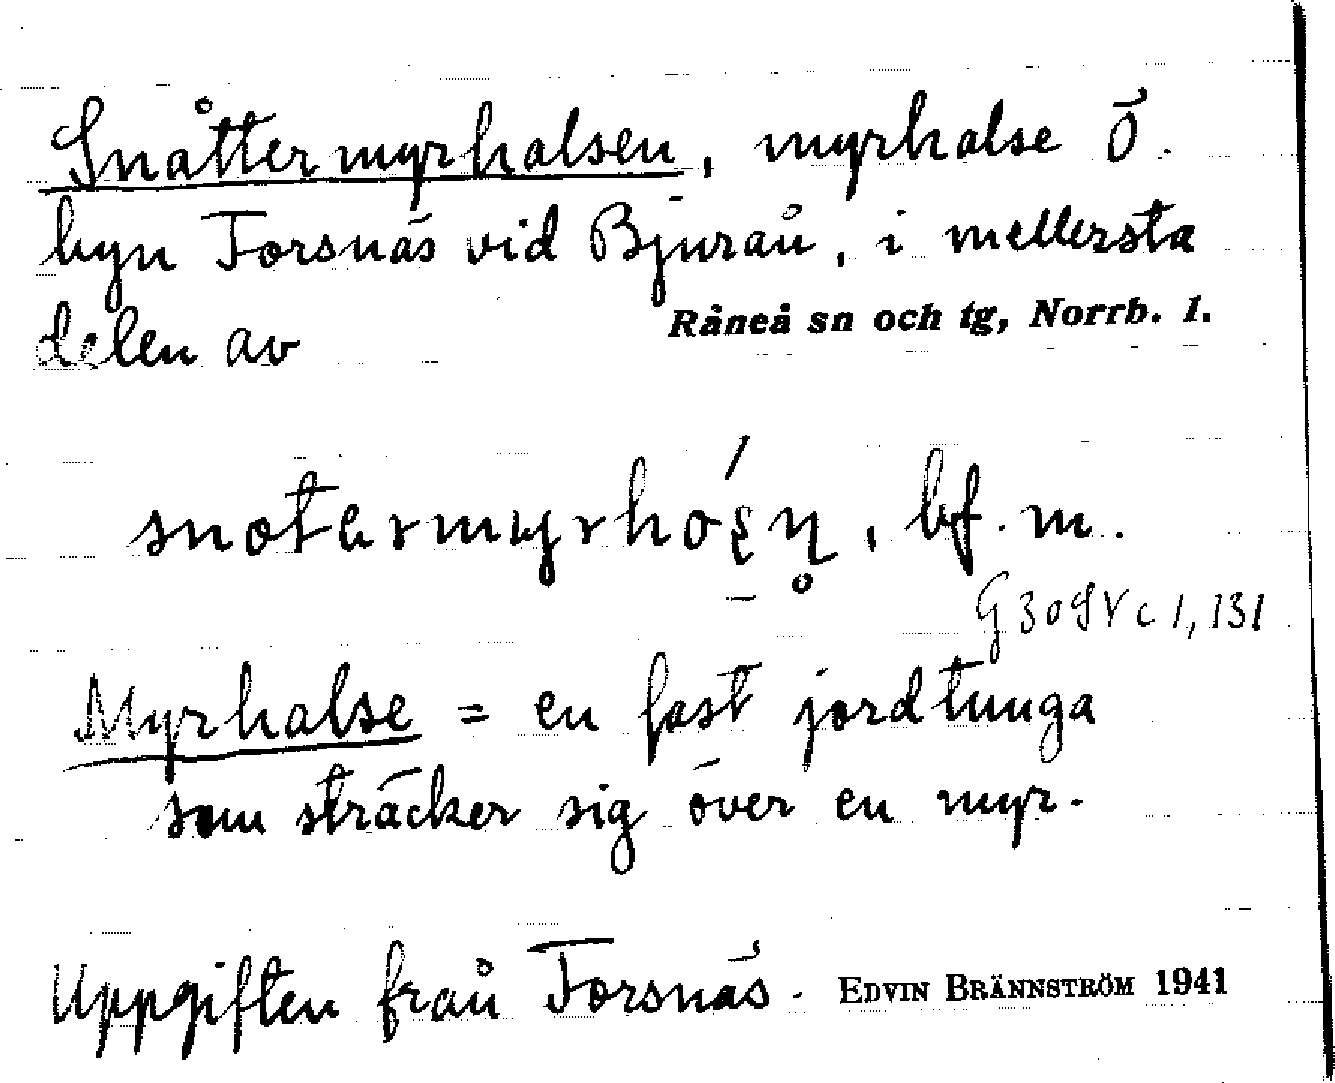 Snåttermyrhalsen, myrhalse Ö.
byn Forsnäs vid Bjurån, i mellersta
delen av Råneå sn och tg, Norrb. l.
bf. m.
Myrhalse = en fast jordtunga
som sträcker sig över en myr.
Uppgiften från Forsnäs. EDVIN BRÄNNSTRÖM 1941